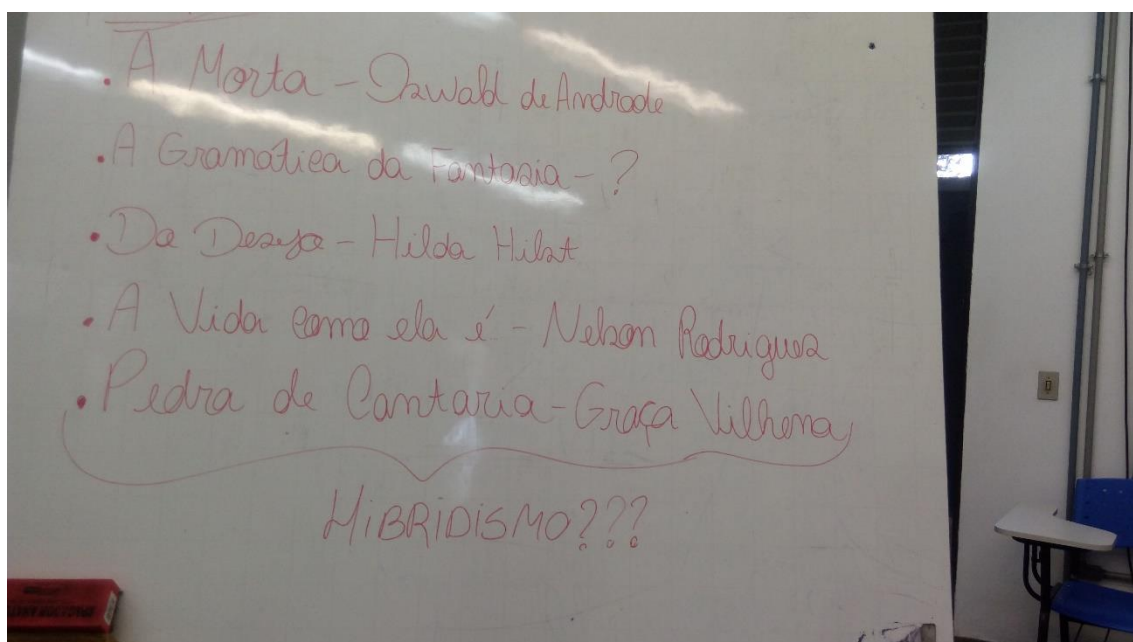 • A Morta - Oswald de Andrade
• A Gramática da Fantasia - ?
• Do Desejo - Hilda Hilst
• A Vida como ela é - Nelson Rodrigues
• Pedra de Cantaria - Graça Vilhena
HiBRiDiSMO???